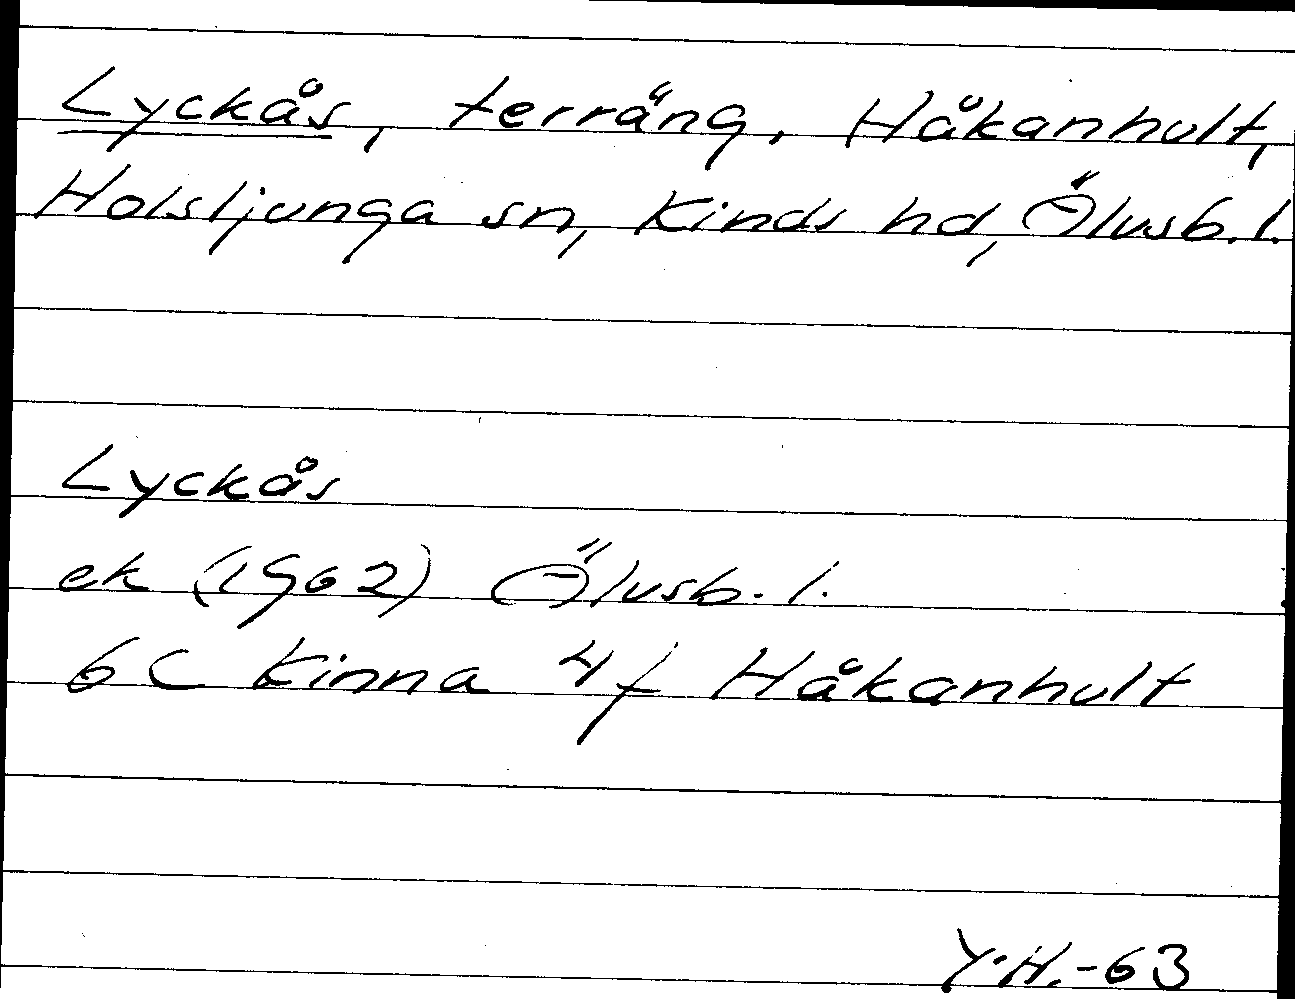 Lyckås, terräng, Håkanhult,
Holsljunga sn, Kinds hd, Älvsb. l.
Lyckås
ek (1962) Älvsb. l.
6 C Kinna 4 f Håkanhult
Y.H.-63